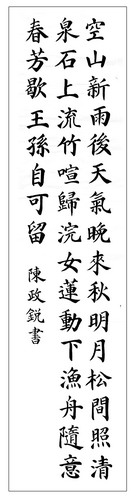 空山新雨後天氣晚來秋明月松間照清
泉石上流竹喧歸浣女蓮動下漁舟隨意
春芳歇王孫自可留
陳政銳書